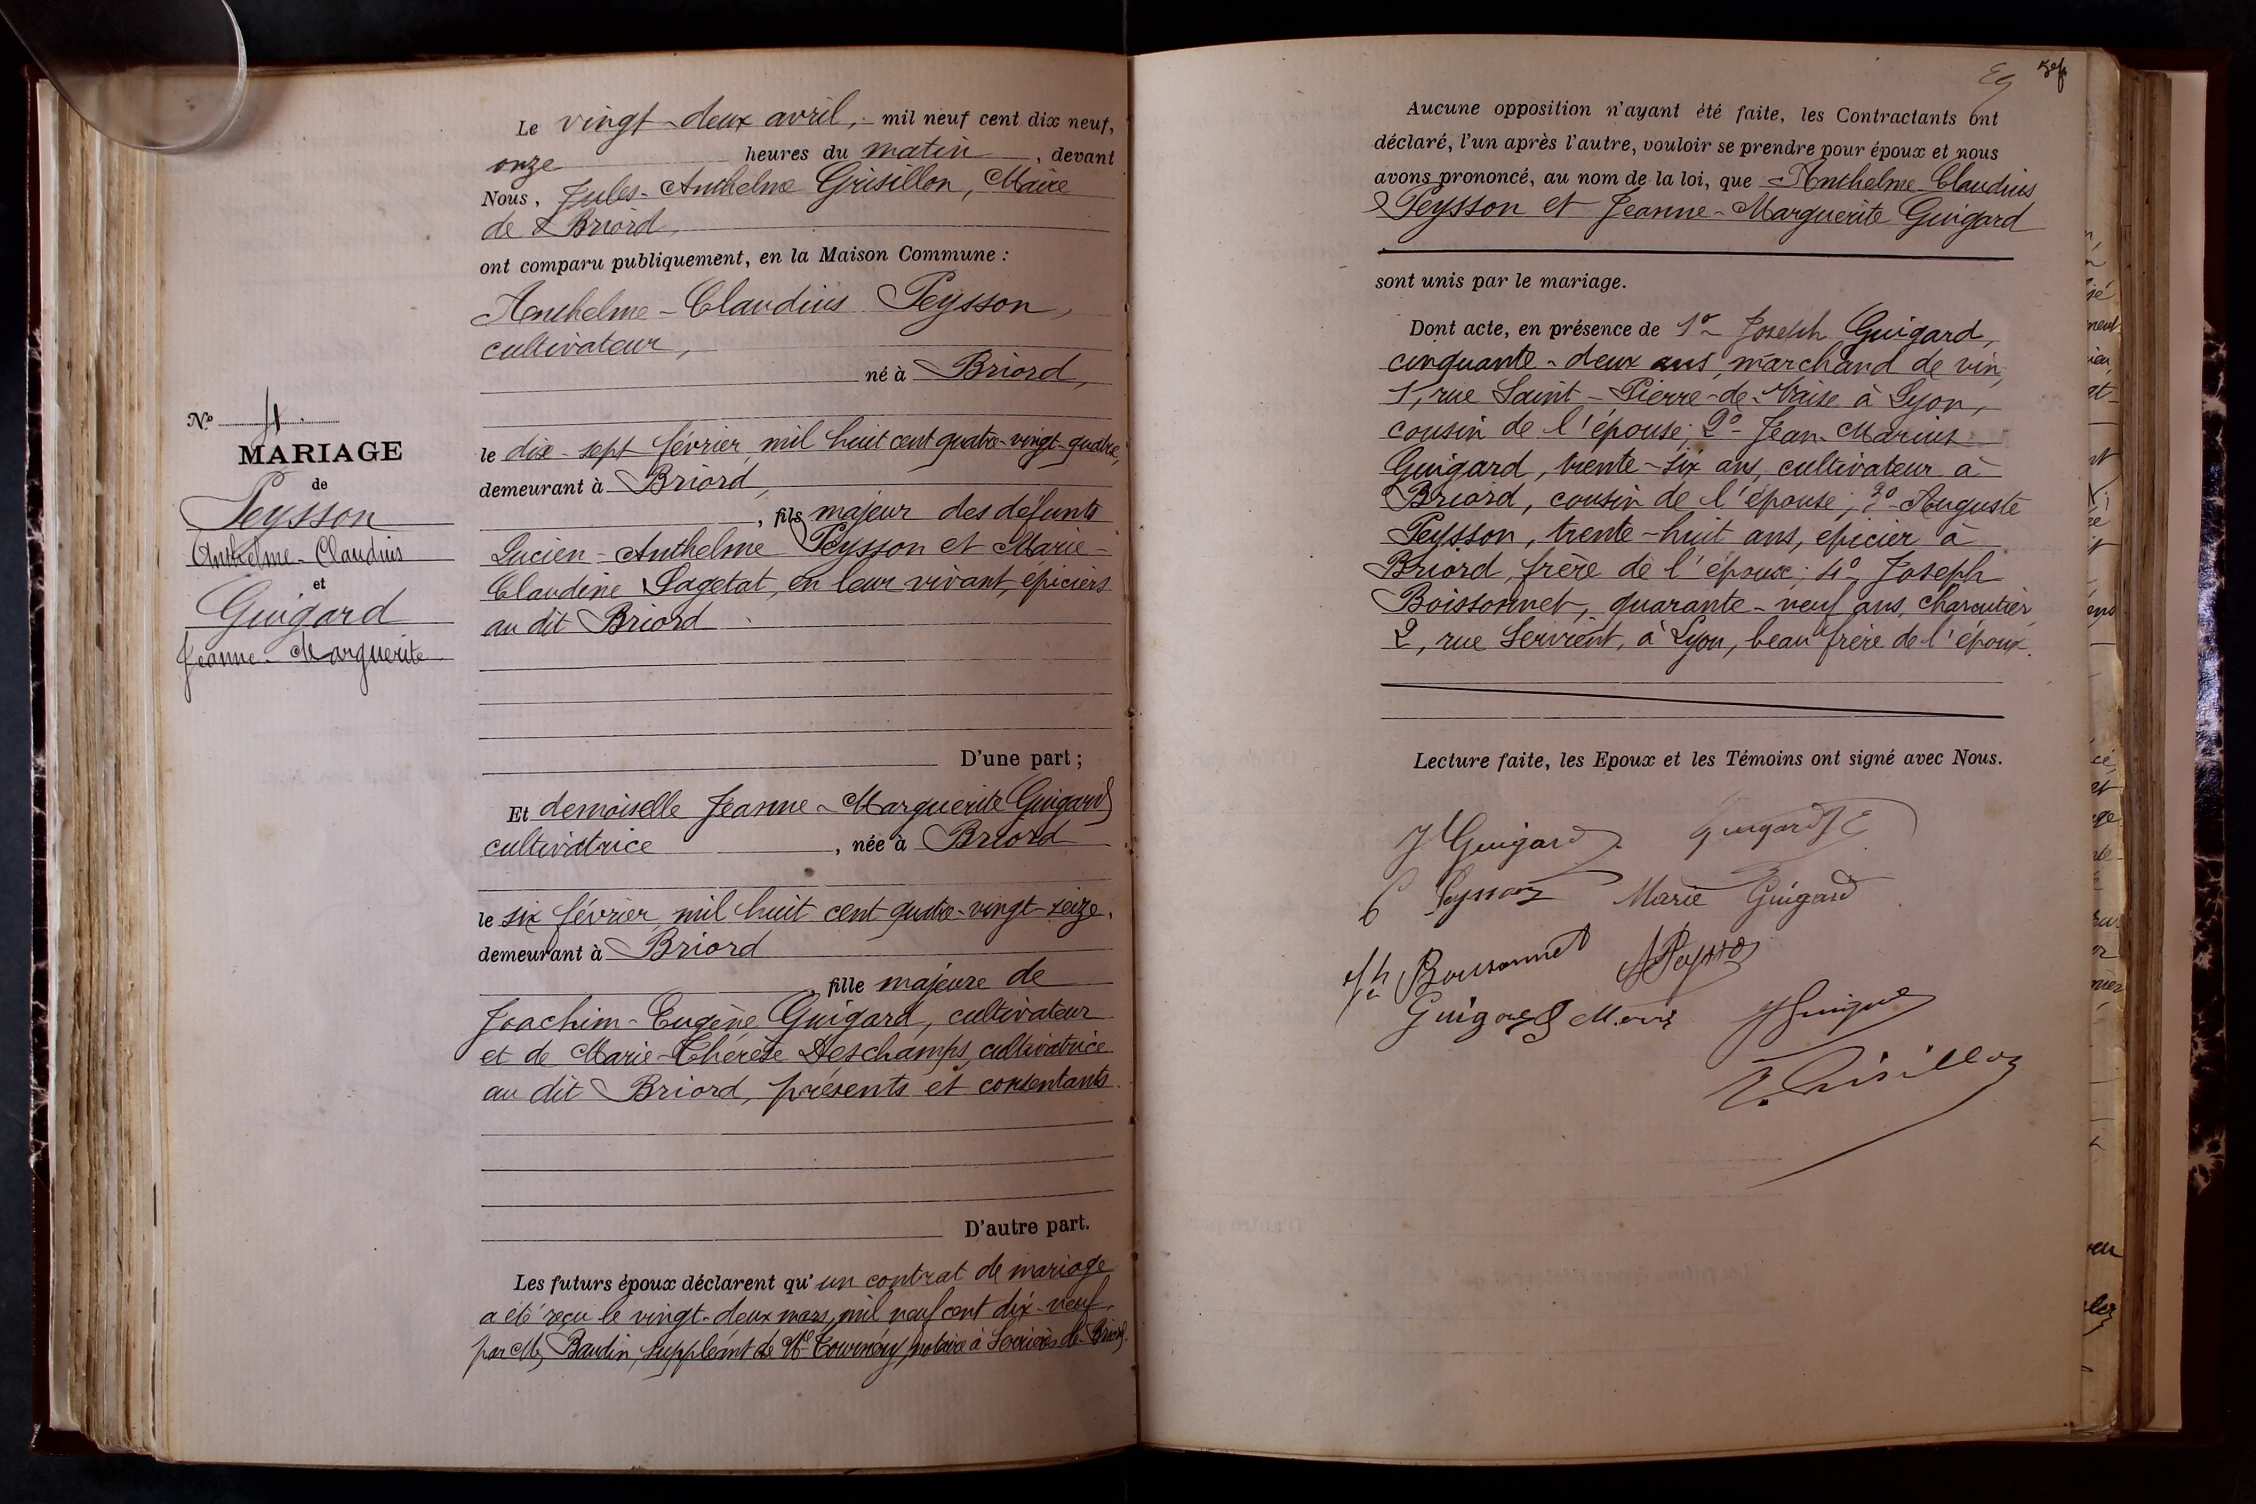 Le vingt-deux avril, mil neuf cent dix neuf,
onze heures du matin, devant
Nous, Jules-Anthelme Grisillon, Maire
de Briord
ont comparu publiquement, en la Maison Commune :
Anthelme-Claudius Peysson,
cultivateur,
né à Briord,
le dix-sept février, mil huit cent quatre-vingt-quatre,
demeurant à Briord,
, fils majeur des défunts
Lucien-Anthelme Peysson et Marie-
Claudine Sagetat, en leur vivant, épiciers
au dit Briord
D'une part ;
Et demoiselle Jeanne-Marguerite Guigard
cultivatrice, née à Briord
le six février, mil huit cent quatre-vingt-seize,
demeurant à Briord
, fille majeure de
Joachim-Eugène Guigard, cultivateur
et de Marie-Thérèse Deschamps, cultivatrice
au dit Briord, présents et consentants.
D'autre part.
Les futurs époux déclarent qu'un contrat de mariage
a été reçu le vingt-deux mars, mil neuf cent dix-neuf,
par Me Baudin, suppléant de Me notaire à Serrières-de-Briord.
No 4.
MARIAGE
de
Peysson
Anthelme-Claudius
et
Guigard
Jeanne-Marguerite
Aucune opposition n'ayant été faite, les Contractants ont
déclaré, l'un après l'autre, vouloir se prendre pour époux et nous
avons prononcé, au nom de la loi, que Anthelme-Claudius
Peysson et Jeanne-Marguerite Guigard
sont unis par le mariage.
Dont acte, en présence de 1o- Joseph Guigard,
cinquante-deux ans, marchand de vin,
1, rue Saint-Pierre-de-Vaise à Lyon,
cousin de l'épouse; 2o- Jean-Marius
Guigard, trente-six ans, cultivateur à
Briord, cousin de l'épouse; 3o- Auguste
Peysson, trente-huit ans, épicier à
Briord, frère de l'époux; 4o- Joseph
Boissonnet, quarante-neuf ans, charcutier,
2, rue Servient, à Lyon, beau-frère de l'époux.
Lecture faite, les Epoux et les Témoins ont signé avec Nous.
J Guigard Guigard J E
C Peysson Marie Guigard
Jh Boissonnet A Peysson
Guigard Marius J Guigard
J. Grisillon